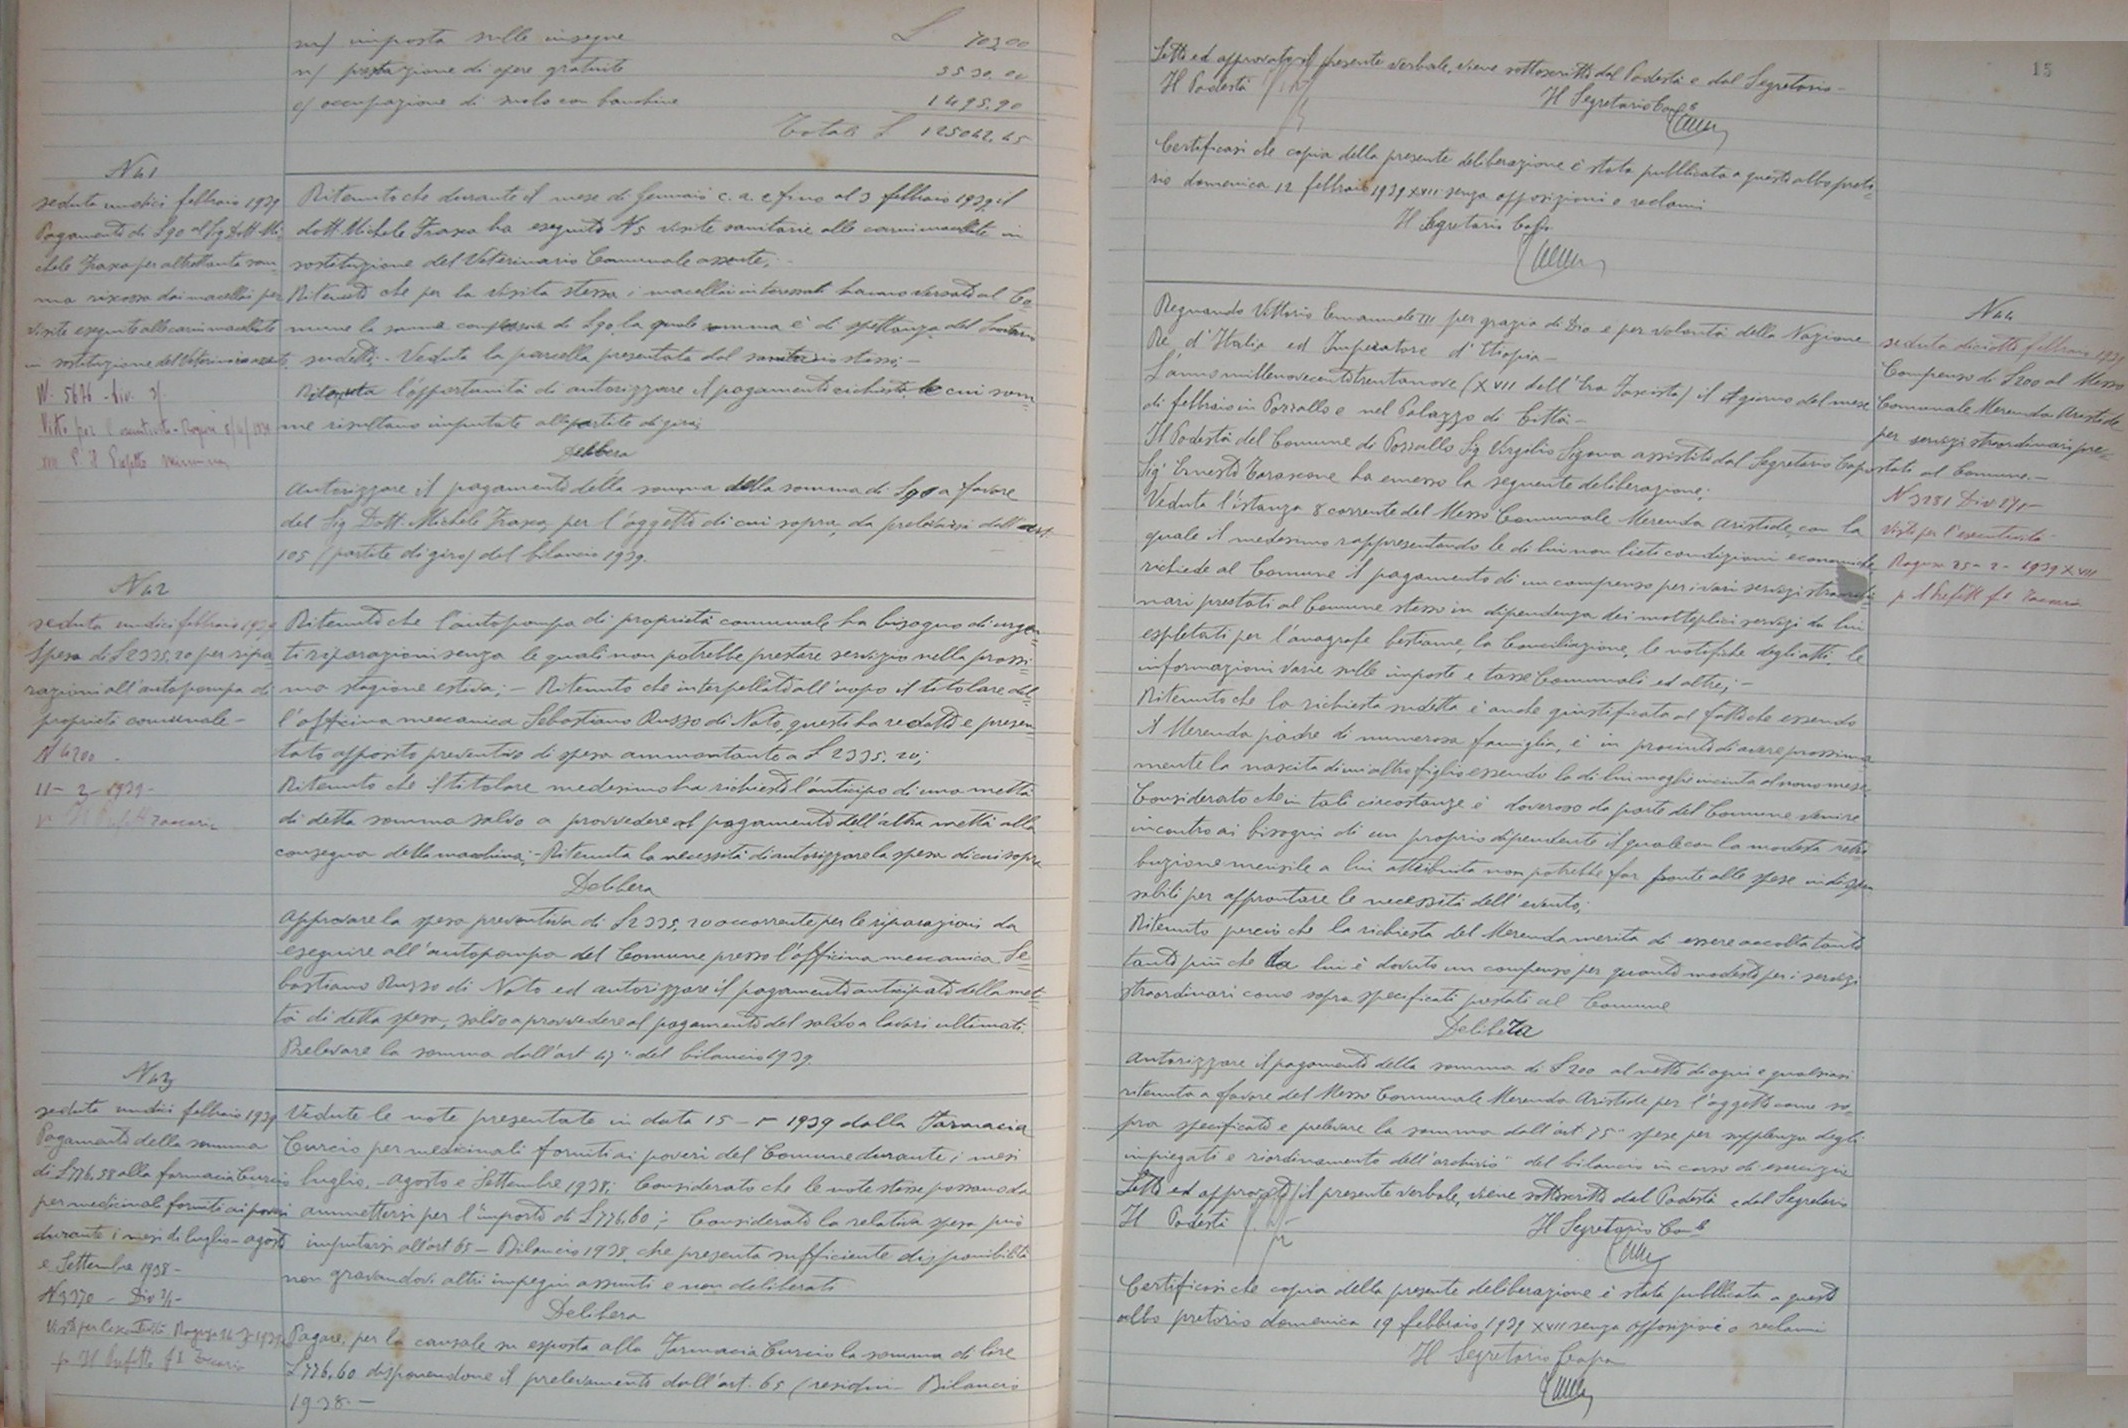 m/ imposta sulle insegne L 703,00
n/ prestazione di opere gratuite 3530,00
o/ occupazione di suolo con banchine 1495,90
Totale L 125042,45
N 41
seduta undici febbraio 1939
Pagamento di L 90 al Sig Dott. Mi-
chele per altrettanta som-
ma riscossa dai macellai per
visite eseguite alle carni macellate
in sostituzione del Veterinario assente
N. 5676 - Div. 2/
Visto per l'esecutività - Ragusa 8/4/1939
XVII P. Il Prefetto
Ritenuto che durante il mese di Gennaio c. a. e fino al 3 febbraio 1939 il
dott. Michele ha eseguito N 5 visite sanitarie alle carni macellate in
sostituzione del Veterinario Comunale assente;
Ritenuto che per la visita stessa i macellai interessati hanno versato al Co-
mune la somma complessiva di L 90, la quale somma è di spettanza del Sanitario
sudetto; - Veduta la parcella presentata dal sanitario stesso; -
Ritenuta l'opportunità di autorizzare il pagamento richiesto, le cui som-
me risultano imputate alle partite di giro;
Delibera
Autorizzare il pagamento della somma della somma di L 90 a favore
del Sig Dott. Michele per l'oggetto di cui sopra, da prelevarsi dall'art.
105 (partite di giro) del bilancio 1939.
N 42
seduta undici febbraio 1939
Spesa di L 2335,20 per ripa-
razioni all'autopompa di
proprietà comunale -
N 4200
11 - 3 - 1939 -
p. Il Prefetto Zaccaria
Ritenuto che l'autopompa di proprietà comunale ha bisogno di urgen-
ti riparazioni senza le quali non potrebbe prestare servizio nella prossi-
ma stagione estiva; - Ritenuto che interpellato all'uopo il titolare del-
l'officina meccanica Sebastiano Russo di Noto, questi ha redatto e presen-
tato apposito preventivo di spesa ammontante a L 2335,20;
Ritenuto che il titolare medesimo ha richiesto l'anticipo di una mettà
di detta somma salvo a provvedere al pagamento dell'altra mettà alla
consegna della macchina; - Ritenuta la necessità di autorizzare la spesa di cui sopra
Delibera
Approvare la spesa preventiva di L 2335,20 occorrente per le riparazioni da
eseguire all'autopompa del Comune presso l'officina meccanica Se-
bastiano Russo di Noto ed autorizzare il pagamento anticipato della met-
tà di detta spesa, salvo a provvedere al pagamento del saldo a lavori ultimati.
Prelevare la somma dall'art 43 del bilancio 1939.
N 43
seduta undici febbraio 1939
Pagamento della somma
di L 776,58 alla farmacia Curcio
per medicinali forniti ai poveri
durante i mesi di luglio - agosto
e Settembre 1938 -
N 3370 - Div 2/1 -
Visto per l'esecutività Ragusa 16-3-1939
p. Il Prefetto f.to Zaccaria
Vedute le note presentate in data 15 - 1 - 1939 dalla Farmacia
Curcio per medicinali forniti ai poveri del Comune durante i mesi
luglio, - agosto e Settembre 1938; Considerato che le note stesse possano da
ammettersi per l'importo di L 776,60; - Considerato la relativa spesa può
imputarsi all'art 65 - Bilancio 1938, che presenta sufficiente disponibilità
non gravandovi altri impegni assunti e non deliberati
Delibera
Pagare, per la causale su esposta alla Farmacia Curcio la somma di lire
L 776,60 disponendone il prelevamento dall'art. 65 (residui - Bilancio
1938. -
15
Letto ed approvato il presente verbale, viene sottoscritto dal Podestà e dal Segretario -
Il Podestà Il Segretario Capo
Certificasi che copia della presente deliberazione è stata pubblicata a questo albo preto-
rio domenica 12 febbraio 1939 XVII senza opposizioni o reclami
Il Segretario Capo
Regnando Vittorio Emanuele III per grazia di Dio e per volontà della Nazione
Re d'Italia ed Imperatore d'Etiopia -
L'anno millenovecentotrentanove (XVII dell'Era Fascista) il giorno del mese
di febbraio in Pozzallo e nel Palazzo di Città -
Il Podestà del Comune di Pozzallo Sig Virgilio assistito dal Segretario Capo
Sig Ernesto Tarascone ha emesso la seguente deliberazione;
Veduta l'istanza 8 corrente del Messo Comunale Merenda Aristide, con la
quale il medesimo rappresentando le di lui non liete condizioni economiche,
richiede al Comune il pagamento di un compenso per i vari servizi straordi-
nari prestati al Comune stesso in dipendenza dei molteplici servizi da lui
espletati per l'anagrafe bestiame, la Conciliazione, le notifiche degli atti, le
informazioni varie sulle imposte e tasse Comunali ed altre; -
Ritenuto che la richiesta sudetta è anche giustificata al fatto che essendo
il Merenda padre di numerosa famiglia, è in procinto di avere prossima-
mente la nascita di un altro figlio essendo la di lui moglie incinta al nono mese;
Considerato che in tali circostanze è doveroso da parte del Comune venire
incontro ai bisogni di un proprio dipendente il quale con la modesta retri-
buzione mensile a lui attribuita non potrebbe far fronte alle spese indispen-
sabili per affrontare le necessità dell'evento;
Ritenuto perciò che la richiesta del Merenda merita di essere accolta tanto
tanto più che da lui è dovuto un compenso per quanto modesto per i servizi
straordinari come sopra specificati prestati al Comune
Delibera
Autorizzare il pagamento della somma di L 200 al netto di ogni e qualsiasi
ritenuta a favore del Messo Comunale Merenda Aristide per l'oggetto come so-
pra specificato e prelevare la somma dall'art 75 "spese per supplenza degli
impiegati e riordinamento dell'archivio" del bilancio in corso di esercizio
Letto ed approvato il presente verbale, viene sottoscritto dal Podestà e dal Segretario
Il Podestà Il Segretario Capo
Certificasi che copia della presente deliberazione è stata pubblicata a questo
albo pretorio domenica 19 febbraio 1939 XVII senza opposizioni o reclami
Il Segretario Capo
N 44
seduta diciotto febbraio 1939
Compenso di L 200 al Messo
Comunale Merenda Aristide
per servizi straordinari pre-
stati al Comune. -
N 3281 Div 2/1 -
Visto per l'esecutività
Ragusa 25 - 2 - 1939 XVII
p. Il Prefetto f.to Zaccaria